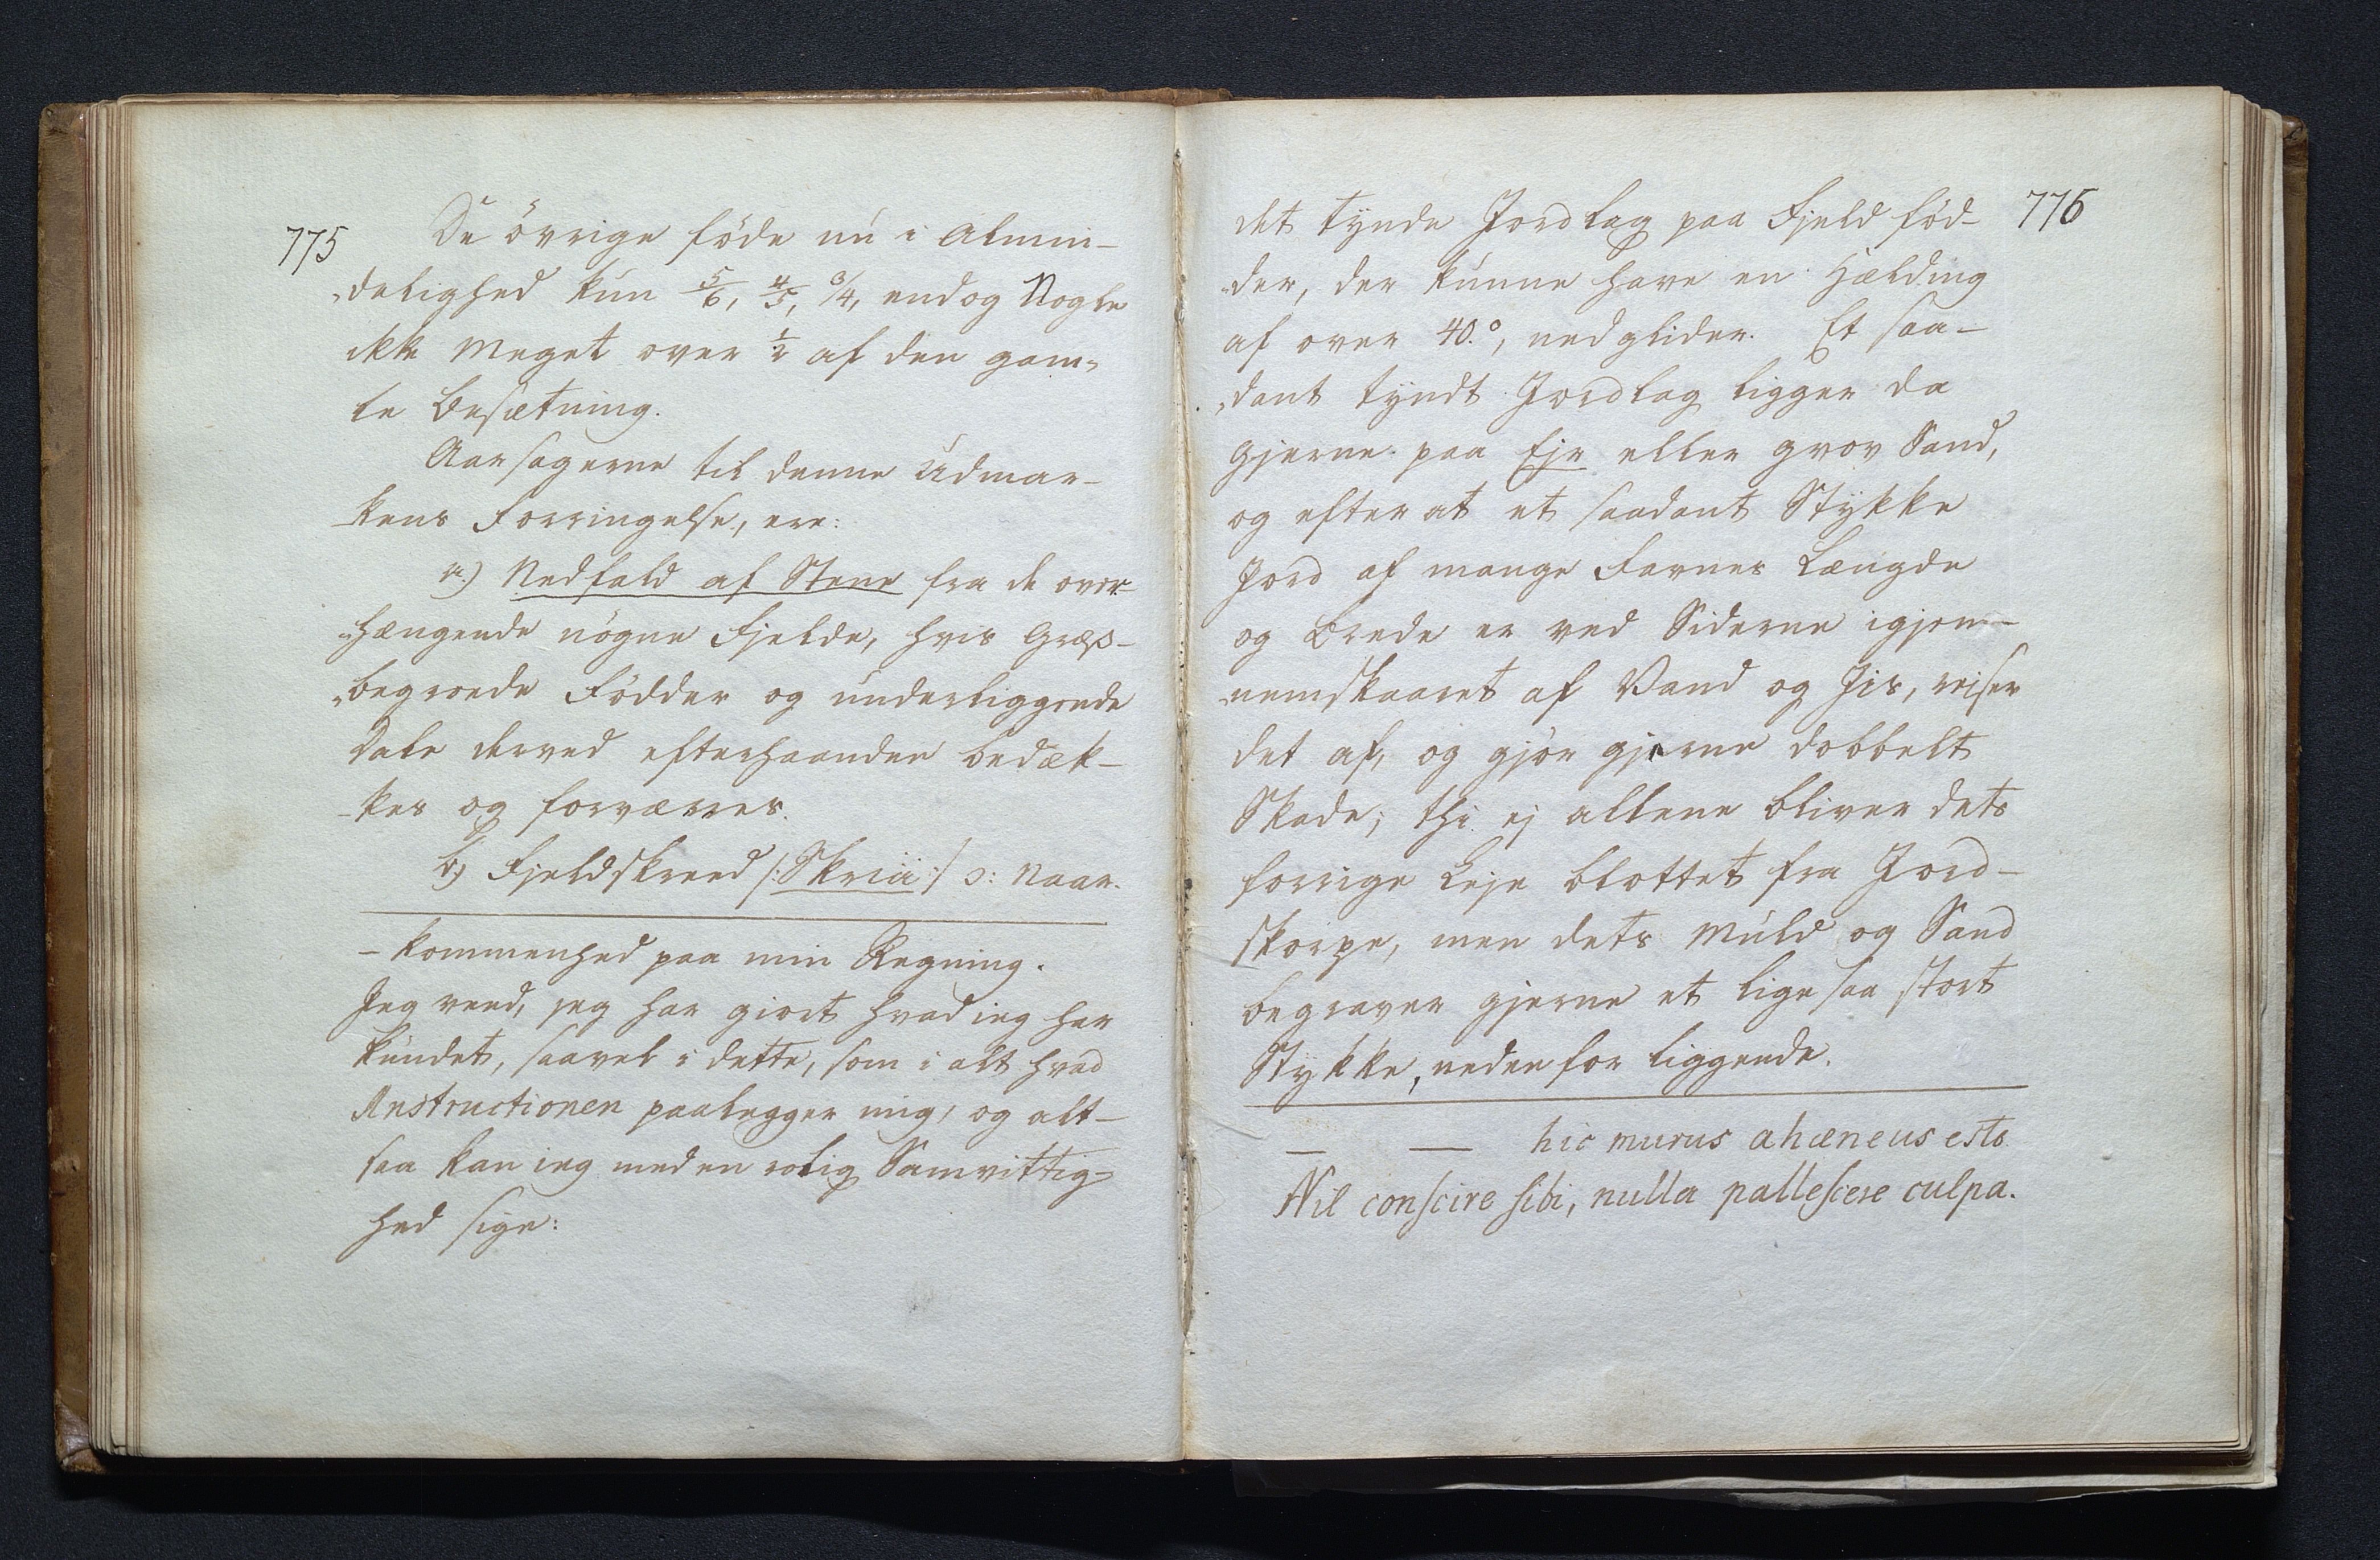 775
De övrige föde nu i Almin-
„delighed kun 5/6, 4/5, 3/4, endog Nogle
ikke meget over 1/2 af den gam„
le Besætning.
Aarsagerne til denne Udmar-
-kens Forringelse, ere:
a.) Nedfald af Stene fra de over-
„hængende nögne Fjelde, hvis Græs-
„begroede Födder og underliggende
Dale derved efterhaanden bedæk-
-kes og forværres.
b.) Fjeldskreed /: Skrii :/ ɔ: Naar.
-kommenhed paa min Regning.
Jeg veed, jeg har giort hvad ieg har
kundet, saavel i dette, som i alt hvad
Instructionen paalegger mig, og alt-
saa kan ieg med en rolig Samvittig-
hed sige:
776
det tynde Jordlag paa Fjeld föd-
„der, der kunne have en Hælding
af over 40.°, nedglider. Et saa-
„dant tyndt Jordlag ligger da
gjerne paa Ejr eller grov Sand,
og efter at et saadant Stykke
Jord af mange Favnes Længde
og Brede er ved Siderne igjen-
„nemskaaret af Vand og Jis, reiser
det af, og gjör gjerne dobbelt
Skade; thi ej allene bliver dets
forrige Leje blottet fra Jord-
skorpe, men dets Muld og Sand
begraver gjerne et lige saa stort
Stykke, neden for liggende.
— — hic murus ahæneus esto
Nil conscire sibi, nulla pallescere culpa.